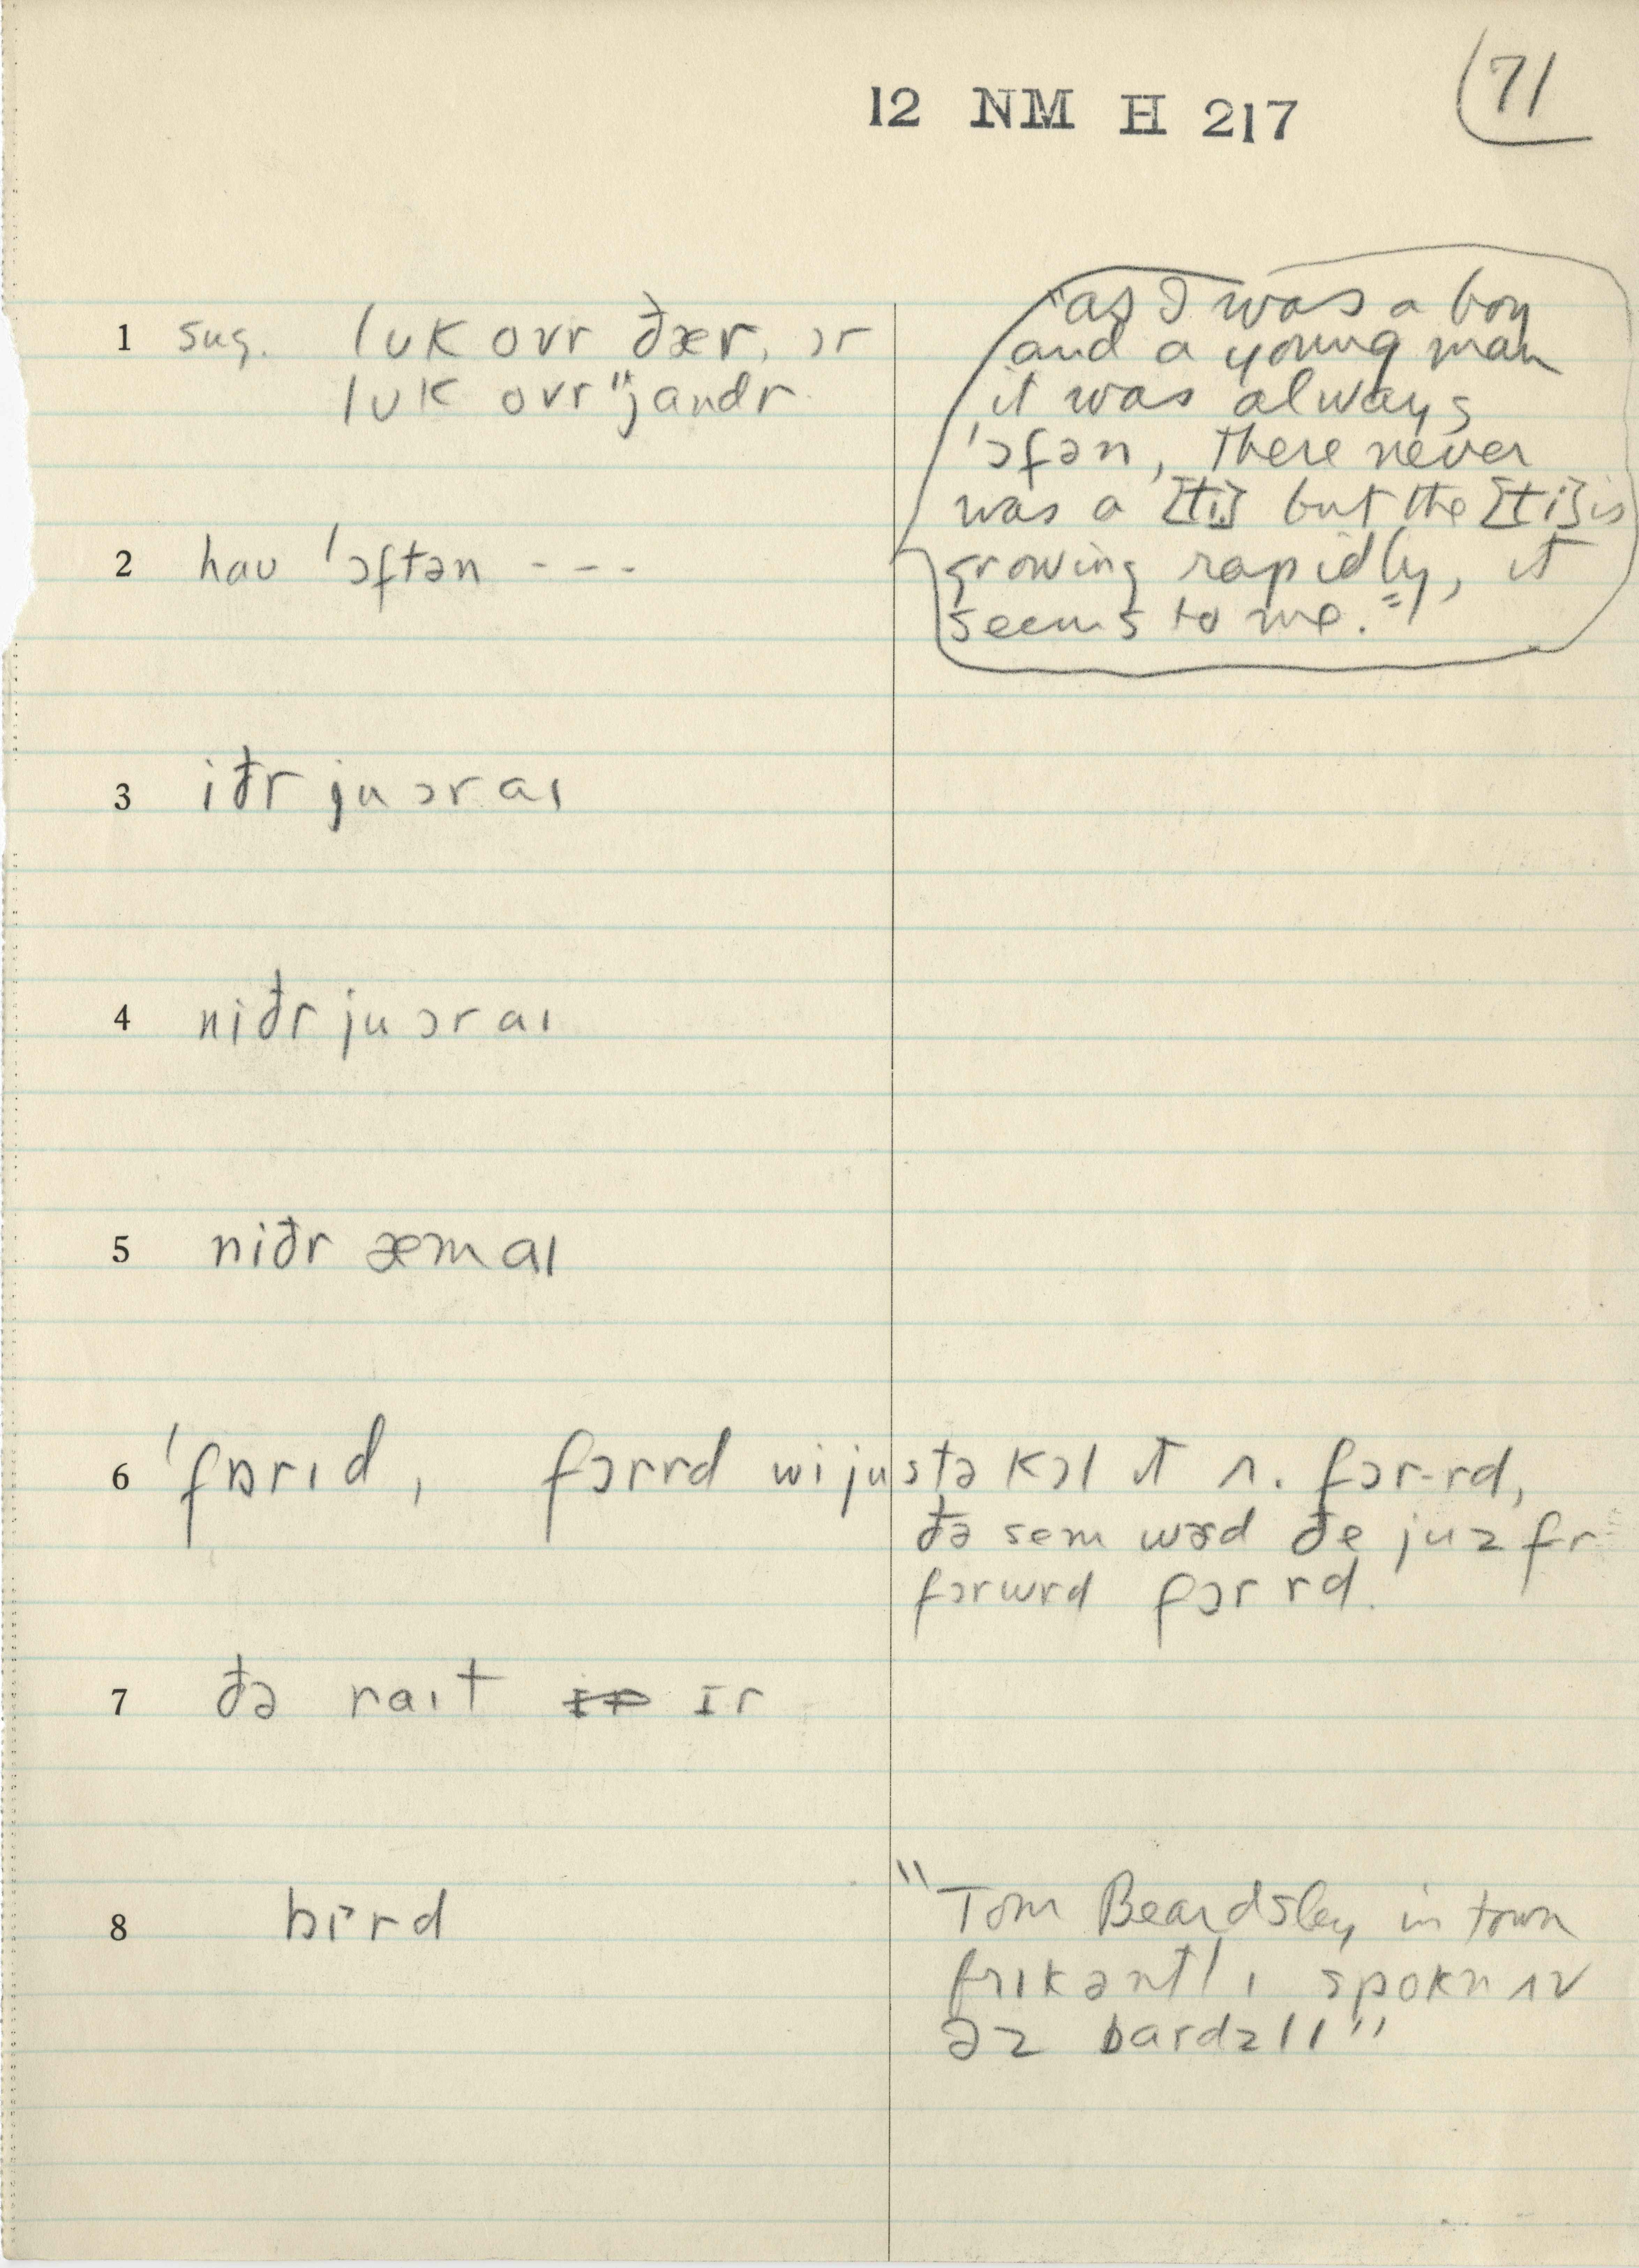 12 NM H 217
71
1 sug. lʊk ovr ðær, ɔr
lʊk ovr "jandr
"as I was a boy
and a young man
it was always
'ɔfən, there never
was a [ti] but the [ti] is
growing rapidly, it
seems to me."
2 haʊ 'ɔftən - - -
3 iðr ju ɔr aɪ
4 niðr ju ɔr aɪ
5 niðr æm aɪ
6 'fɒrɪd, fɔrrd wi justə kɔl ɪt ʌ. fɔr-rd,
ðə sem wɜd ðe juz fr
fɔrwrd fɔrrd.
7 ðə raɪt ɪr
8 bɪrd
"Tom Beardsley in town
frikəntlɪ spokn ʌv
əz bardzlɪ"